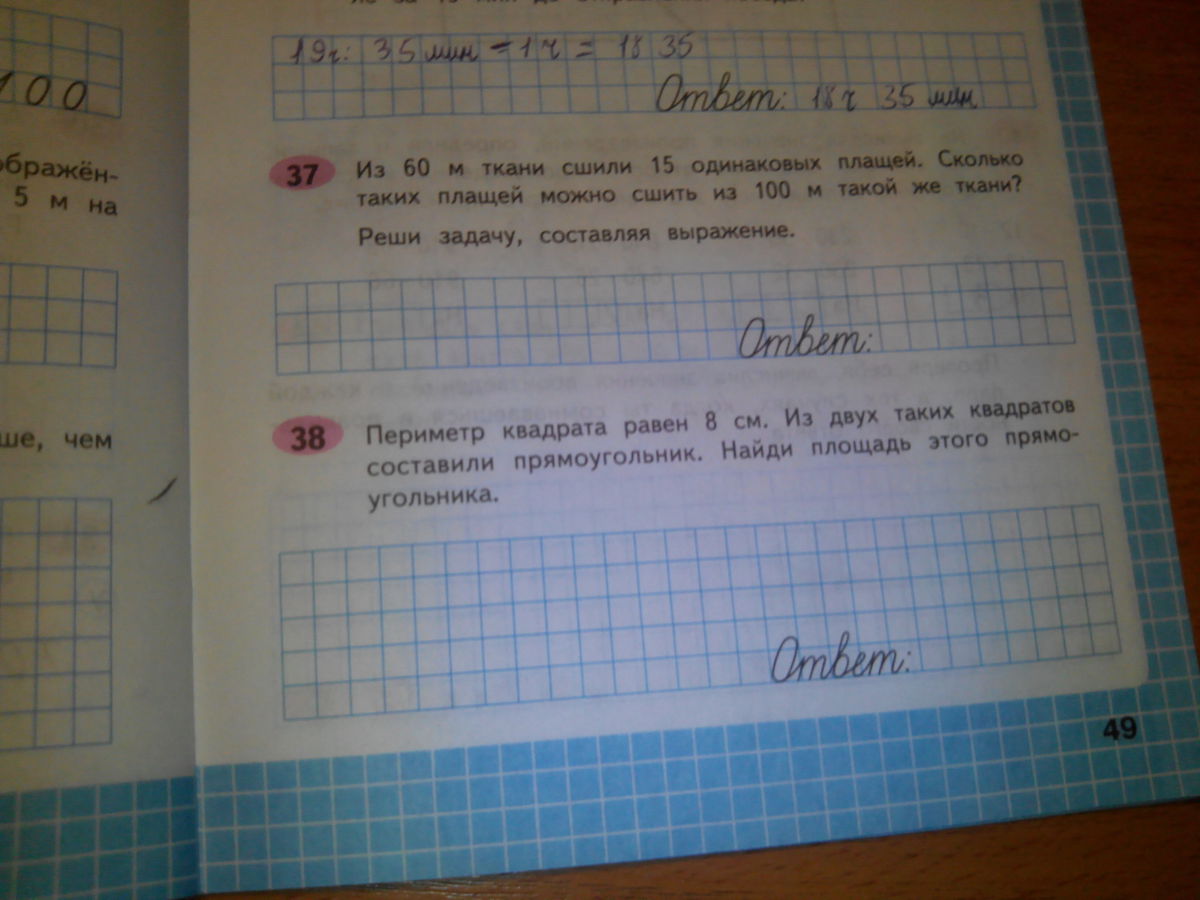 19ч: 35 мин - 1 ч = 18 35
Ответ: 18 ч 35 мин
100
ображён-
5 м на
ше, чем
37 Из 60 м ткани сшили 15 одинаковых плащей. Сколько
таких плащей можно сшить из 100 м такой же ткани?
Реши задачу, составляя выражение.
Ответ:
38 Периметр квадрата равен 8 см. Из двух таких квадратов
составили прямоугольник. Найди площадь этого прямо-
угольника.
Ответ:
49